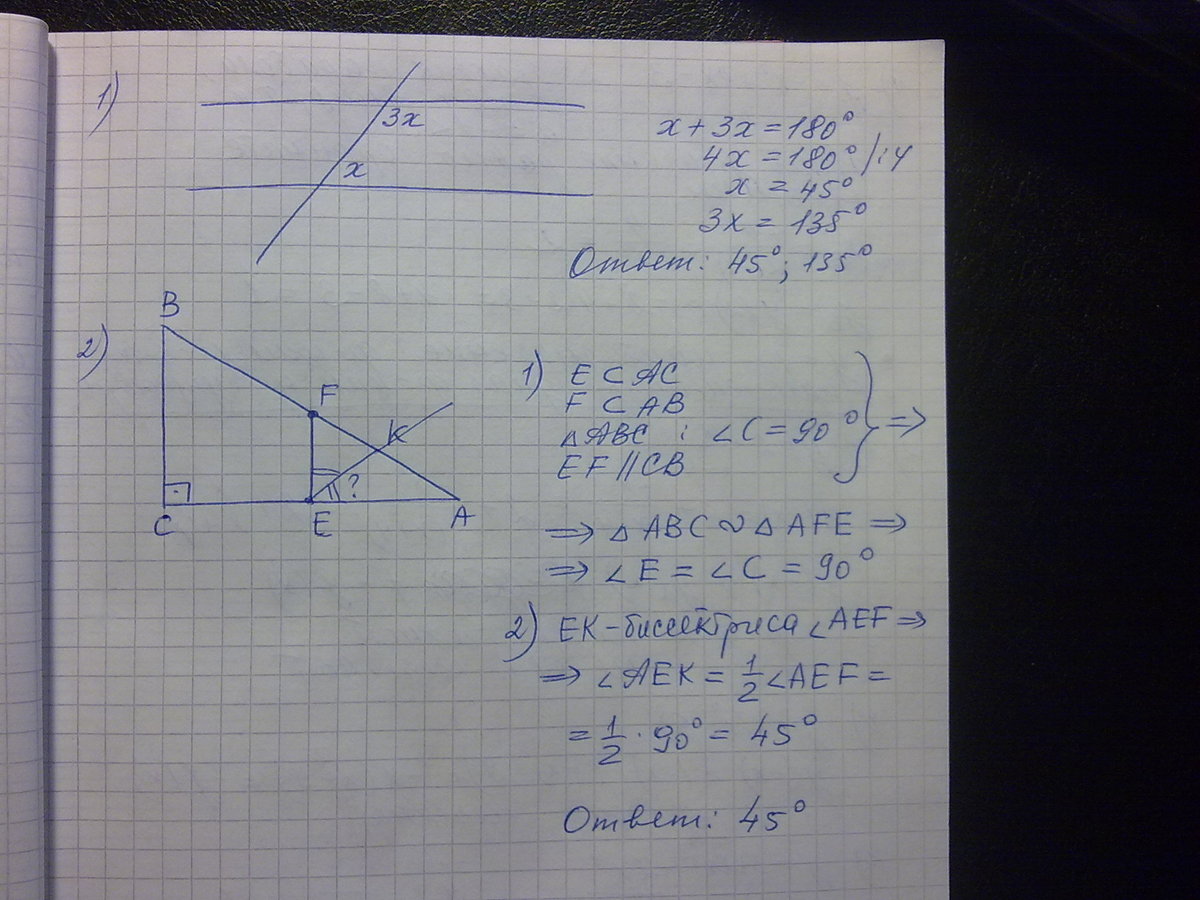 1)
3x
x
x + 3x = 180°
4x = 180° /:4
x = 45°
3x = 135°
Ответ: 45°; 135°
2)
B
F
K
?
C
E
A
1) E ⊂ AC
F ⊂ AB
△ABC : ∠C = 90° } ⇒
EF // CB
⇒ △ ABC ∾ △ AFE ⇒
⇒ ∠E = ∠C = 90°
2) EK - биссектриса ∠AEF ⇒
⇒ ∠AEK = 1/2 ∠AEF =
= 1/2 · 90° = 45°
Ответ: 45°